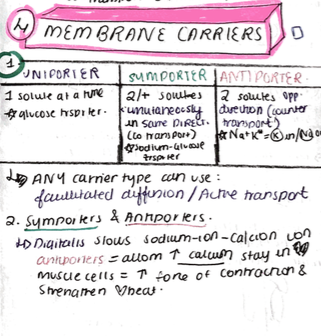 4 MEMBRANE CARRIERS
1
UNIPORTER SYMPORTER ANTIPORTER.
1 solute at a time
☆ glucose trsprter.
2/+ solutes
simultaneously
in same DIRECt.
(co transport)
☆ sodium-Glucose
trsprter
2 solutes opp.
direction (counter
transport)
☆ Na+ K+
↳ ANY carrier type can use:
facilitated diffusion / Active transport
2. Symporters & Antiporters.
↳ Digitalis slows sodium-ion-calcium ion
antiporters = allow ↑ calcium stay in
muscle cells = ↑ force of contraction &
strengthen ♡beat.